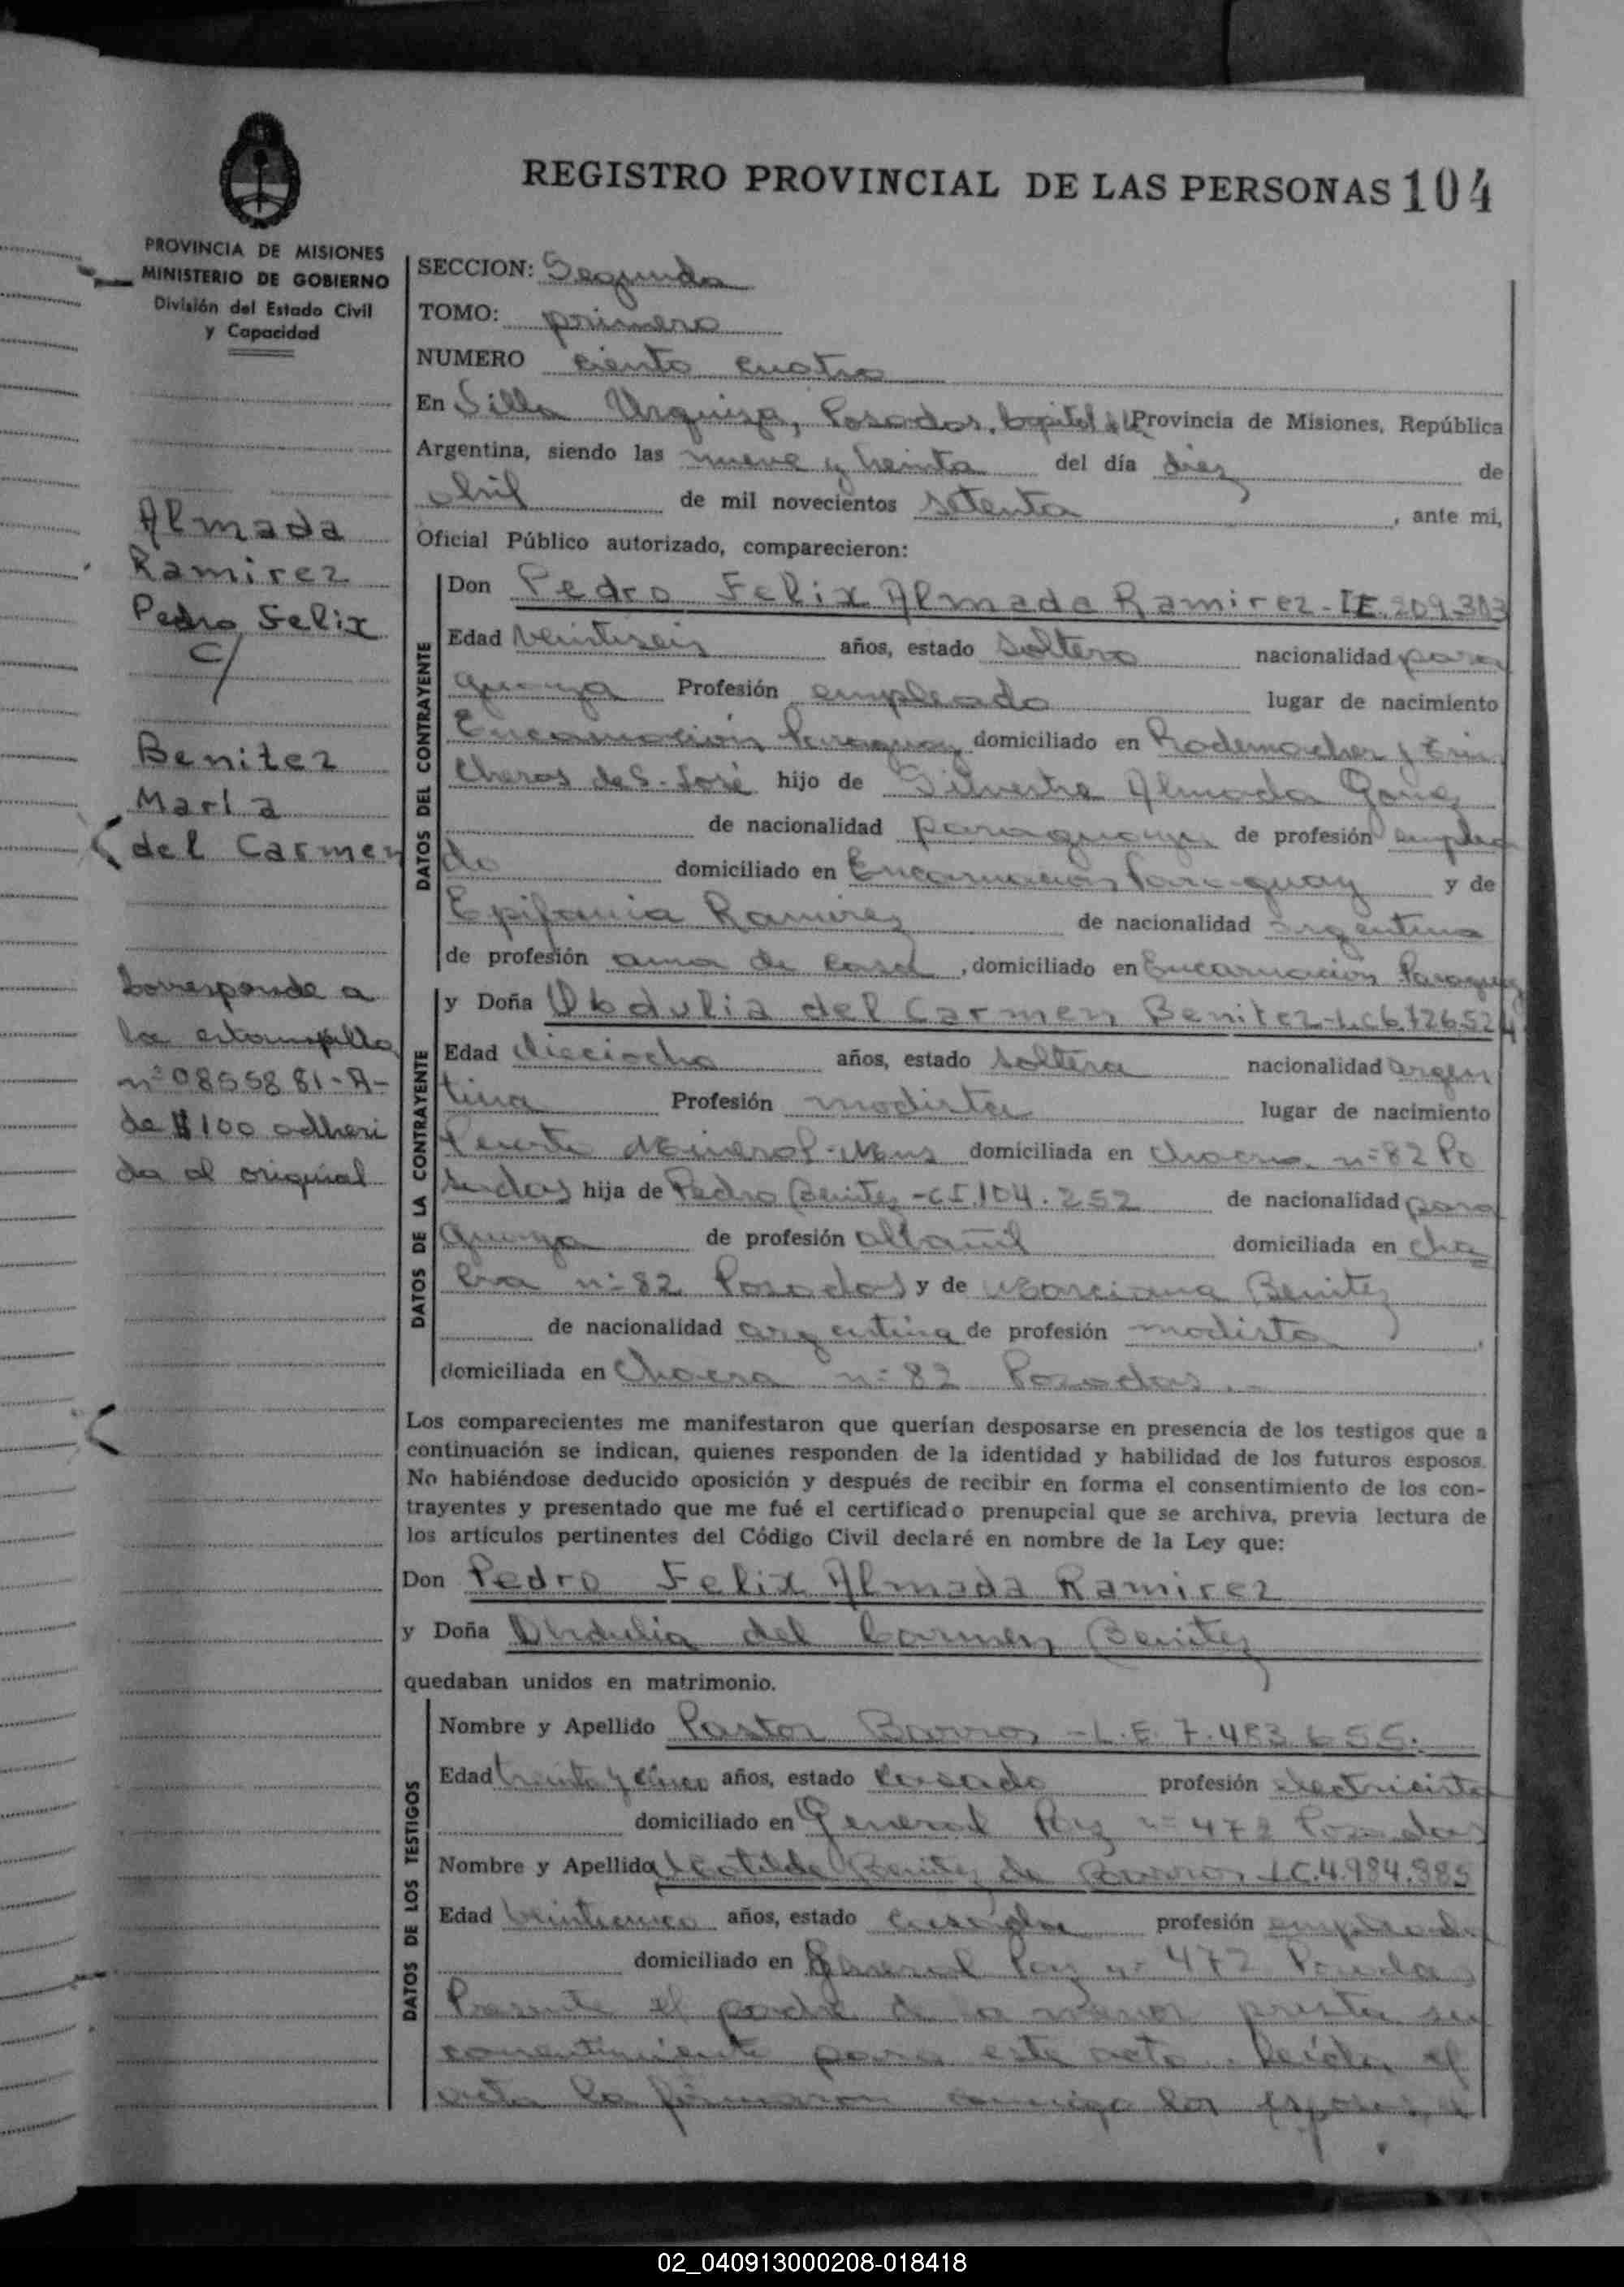 REGISTRO PROVINCIAL DE LAS PERSONAS 104
PROVINCIA DE MISIONES
MINISTERIO DE GOBIERNO
División del Estado Civil
y Capacidad
Almada
Ramirez
Pedro Felix
c/
Benitez
María
del Carmen
Corresponde a
la estampilla
nº 0855881-A-
de $100 adheri
da al original
SECCION: Segunda
TOMO: primero
NUMERO ciento cuatro
En Villa Urquiza, Posadas, Capital de la Provincia de Misiones, República
Argentina, siendo las nueve y treinta del día diez de
abril de mil novecientos setenta, ante mi,
Oficial Público autorizado, comparecieron:
DATOS DEL CONTRAYENTE
Don Pedro Felix Almada Ramirez - IE. 209.313
Edad veintiseis años, estado soltero nacionalidad para
guaya Profesión empleado lugar de nacimiento
Encarnación Paraguay domiciliado en Rademacher y Trin
cheras de S. José hijo de Silvestre Almada
de nacionalidad paraguaya de profesión emplea
do domiciliado en Encarnación Paraguay y de
Epifania Ramirez de nacionalidad argentina
de profesión ama de casa, domiciliado en Encarnación Paraguay
DATOS DE LA CONTRAYENTE
y Doña Obdulia del Carmen Benitez - LC 6.726.524
Edad dieciocho años, estado soltera nacionalidad argen
tina Profesión modista lugar de nacimiento
Puerto Mineral - Mnes domiciliada en chacra nº 82 Po
sadas hija de Pedro Benitez - C.I. 104.252 de nacionalidad para
guaya de profesión albañil domiciliada en cha
cra nº 82 Posadas y de Marciana Benitez
de nacionalidad argentina de profesión modista,
domiciliada en Chacra nº 82 Posadas.-
Los comparecientes me manifestaron que querían desposarse en presencia de los testigos que a
continuación se indican, quienes responden de la identidad y habilidad de los futuros esposos.
No habiéndose deducido oposición y después de recibir en forma el consentimiento de los con-
trayentes y presentado que me fué el certificado prenupcial que se archiva, previa lectura de
los artículos pertinentes del Código Civil declaré en nombre de la Ley que:
Don Pedro Felix Almada Ramirez
y Doña Obdulia del Carmen Benitez
quedaban unidos en matrimonio.
DATOS DE LOS TESTIGOS
Nombre y Apellido Pastor Barros - L.E. 7.483.655.
Edad treinta y cinco años, estado casado profesión electricista
domiciliado en General Paz nº 472 Posadas
Nombre y Apellido Matilde Benitez de Barros LC. 4.984.385
Edad veinticinco años, estado casada profesión empleada
domiciliado en General Paz nº 472 Posadas
Presente el padre de la menor presta su
consentimiento para este acto. Leída el
acta la firmaron conmigo los esposos, el
02_040913000208-018418